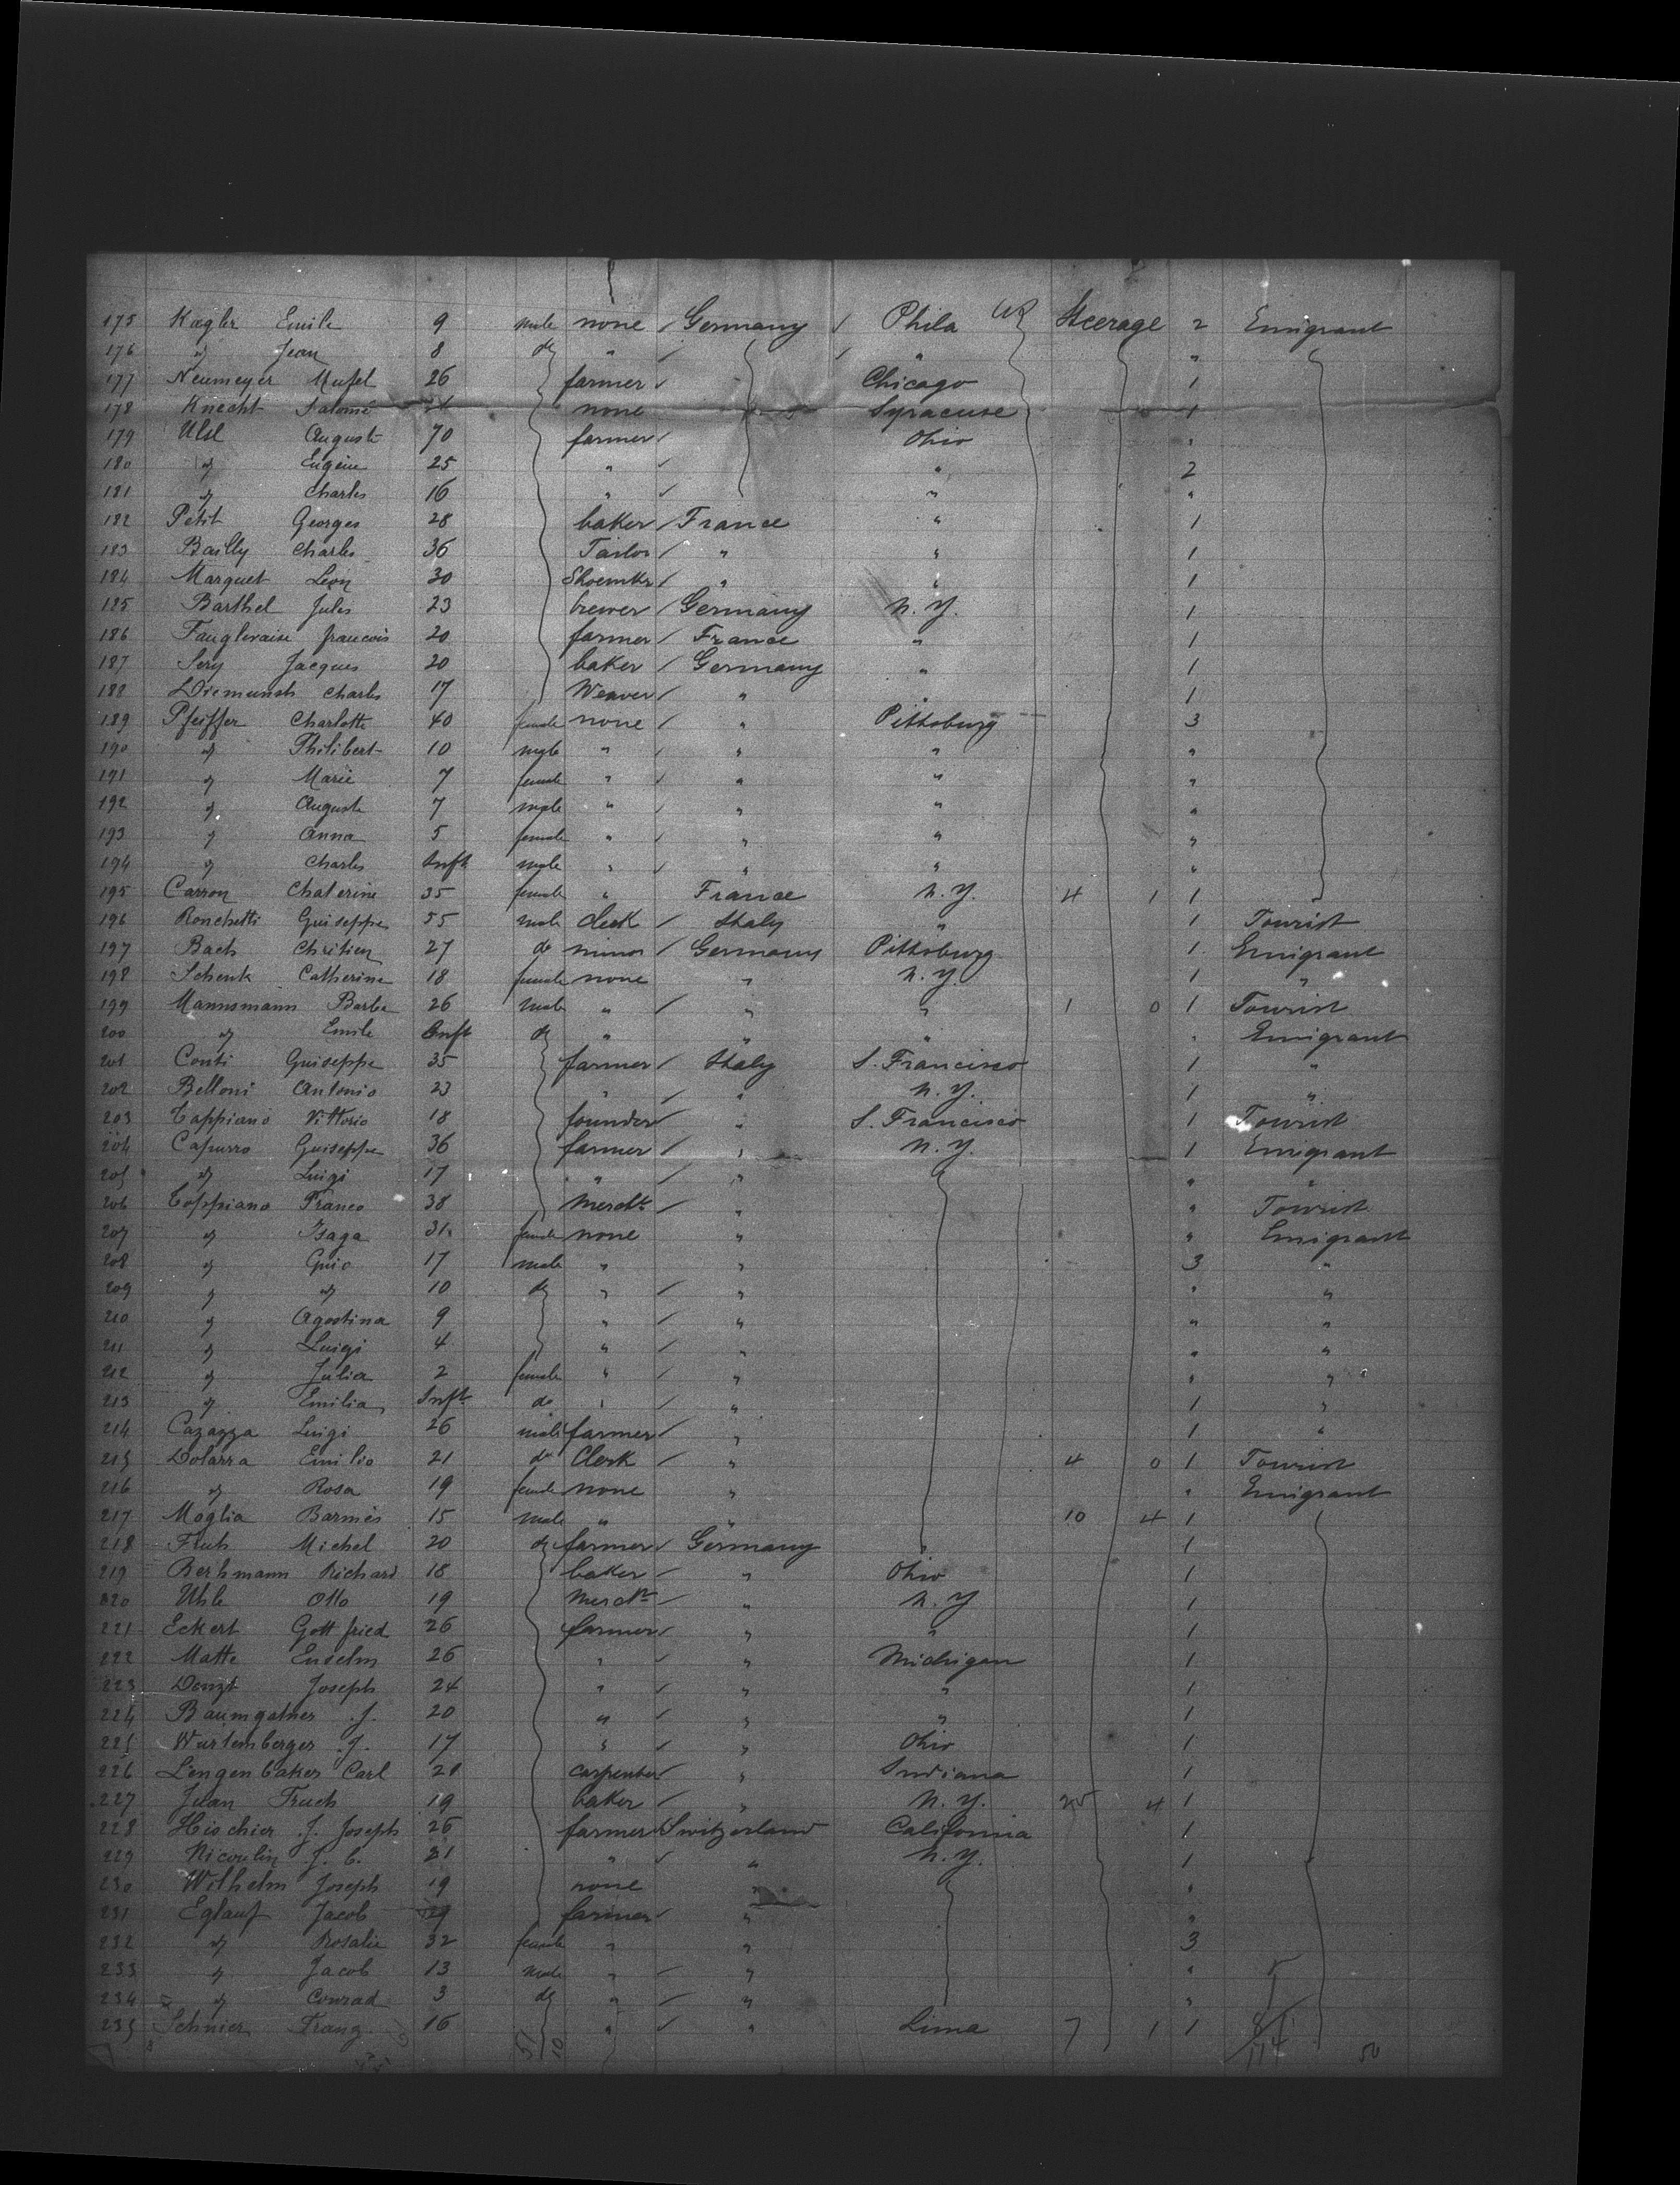 175 Kagler Emile 9 male none Germany Phila Steerage 2 Emigrant
176 " Jean 8 do " " "
177 Neumeyer 26 farmer Chicago 1
178 Knecht Salomé none Syracuse 1
179 Auguste 70 farmer Ohio "
180 " Eugène 25 " " 2
181 " Charles 16 " " "
182 Petit Georges 28 baker France " 1
183 Bailly Charles 36 Tailor " " 1
184 Marquet Léon 30 Shoemkr " " 1
185 Barthel Jules 23 brewer Germany N.Y. 1
186 francois 20 farmer France " 1
187 Jacques 20 baker Germany " 1
188 Diemunsh Charles 17 Weaver " " 1
189 Pfeiffer Charlotte 40 female none " Pittsburg 3
190 " Philibert 10 male " " " "
191 " Marie 7 female " " " "
192 " Auguste 7 male " " " "
193 " Anna 5 female " " " "
194 " Charles Inft male " " " "
195 Carron Chaterine 35 female " France N.Y. 4 1 1
196 Ronchetti Guiseppe 55 male clerk Italy " 1 Tourist
197 Bach Chrétien 27 do minor Germany Pittsburg 1 Emigrant
198 Schenk Catherine 18 female none " N.Y. 1 "
199 Mannsmann Barba 26 male " " " 1 0 1 Tourist
200 " Emile Inft do " " " " Emigrant
201 Conti Guiseppe 35 farmer Italy S. Francisco 1 "
202 Belloni Antonio 23 " " N.Y. 1 "
203 Tappiano Vittorio 18 founder " S. Francisco 1 Tourist
204 Capurro Guiseppe 36 farmer " N.Y. 1 Emigrant
205 " Luigi 17 " " " "
206 Toppiano Franco 38 Merdt " " Tourist
207 " Isaga 31 female none " " Emigrant
208 " Guio 17 male " " 3 "
209 " " 10 do " " " "
210 " Agostina 9 " " " "
211 " Luigi 4 " " " "
212 " Julia 2 female " " " "
213 " Emilia Inft do " " 1 "
214 Cazazza Luigi 26 male farmer " 1 "
215 Dolarra Emilio 21 do Clerk " 4 0 1 Tourist
216 " Rosa 19 female none " " Emigrant
217 Moglia 15 male " " 10 4 1
218 Michel 20 do farmer Germany " 1
219 Berhmann Richard 18 baker " Ohio 1
220 Uhle Otto 19 Merdt " N.Y 1
221 Eckert Gottfried 26 farmer " " 1
222 Matte Enselm 26 " " Michigan 1
223 Denzt Joseph 24 " " " 1
224 Baumgatner J. 20 " " " 1
225 Wurtemberger J. 17 " " Ohio 1
226 Lengenbaker Carl 21 carpenter " Indiana 1
227 Juan Fruch 19 baker " N.Y. 25 4 1
228 Hischier J. Joseph 26 farmer Switzerland California 1
229 Nicoulin J. C. 21 " " N.Y. 1
230 Wilhelm Joseph 19 none " "
231 Eglauf Jacob 29 farmer " "
232 " Rosalie 32 female " " 3
233 " Jacob 13 male " " "
234 " Conrad 3 do " " "
235 Schnier Franz 16 " " Lima 7 1 1
51 10 114 50